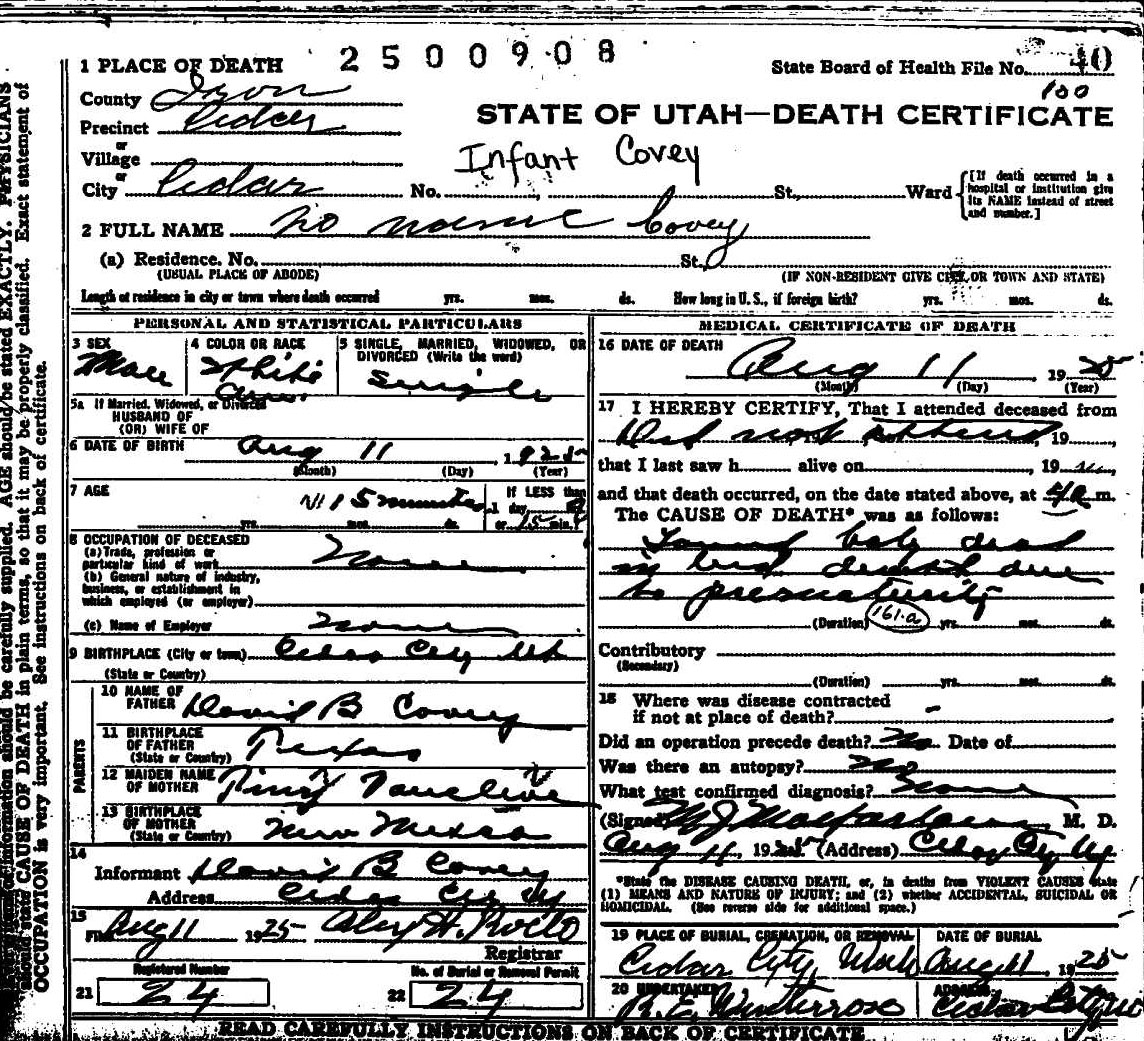 2500908
1 PLACE OF DEATH
State Board of Health File No. 40
100
County Iron
STATE OF UTAH—DEATH CERTIFICATE
Precinct Cedar
or
Village
Infant Covey
or
City Cedar No. St., Ward
[If death occurred in a hospital or institution give its NAME instead of street and number.]
2 FULL NAME no name Covey
(a) Residence. No. St.,
(USUAL PLACE OF ABODE) (IF NON-RESIDENT GIVE CITY OR TOWN AND STATE)
Length of residence in city or town where death occurred yrs. mos. ds. How long in U. S., if foreign birth? yrs. mos. ds.
PERSONAL AND STATISTICAL PARTICULARS
3 SEX
Male
4 COLOR OR RACE
White
5 SINGLE, MARRIED, WIDOWED, OR DIVORCED (Write the word)
Single
5a If Married, Widowed, or Divorced
HUSBAND OF
(OR) WIFE OF
6 DATE OF BIRTH Aug 11 1925
(Month) (Day) (Year)
7 AGE 15 minutes
yrs. mos. ds.
If LESS than
1 day
or 15 min.
8 OCCUPATION OF DECEASED
(a) Trade, profession or
particular kind of work None
(b) General nature of industry,
business, or establishment in
which employed (or employer)
(c) Name of Employer none
9 BIRTHPLACE (City or town) Cedar City Ut
(State or Country)
PARENTS
10 NAME OF
FATHER David B Covey
11 BIRTHPLACE
OF FATHER Texas
(State or Country)
12 MAIDEN NAME
OF MOTHER Tiny Vancleve
13 BIRTHPLACE
OF MOTHER New Mexico
(State or Country)
14
Informant David B Covey
Address Cedar City Ut
15
Filed Aug 11 1925 Alex H. Rollo
Registrar
Registered Number
21 24
No. of Burial or Removal Permit
22 24
MEDICAL CERTIFICATE OF DEATH
16 DATE OF DEATH
Aug 11 1925
(Month) (Day) (Year)
17 I HEREBY CERTIFY, That I attended deceased from
Did not attend, 19
that I last saw h alive on , 19
and that death occurred, on the date stated above, at m.
The CAUSE OF DEATH* was as follows:
Found baby dead
in bed death due
to prematurity
(Duration) 161.a yrs. mos. ds.
Contributory
(Secondary)
(Duration) yrs. mos. ds.
18 Where was disease contracted
if not at place of death? -
Did an operation precede death? No Date of
Was there an autopsy? No
What test confirmed diagnosis? None
(Signed) M J Macfarlane, M. D.
Aug 11, 1925. (Address) Cedar City Ut
*State the DISEASE CAUSING DEATH, or, in deaths from VIOLENT CAUSES state
(1) MEANS AND NATURE OF INJURY; and (2) whether ACCIDENTAL, SUICIDAL OR
HOMICIDAL. (See reverse side for additional space.)
19 PLACE OF BURIAL, CREMATION, OR REMOVAL
Cedar City, Utah
DATE OF BURIAL
Aug 11 1925
20 UNDERTAKER
R. E. Winterrose
ADDRESS
Cedar City Ut
READ CAREFULLY INSTRUCTIONS ON BACK OF CERTIFICATE
information should be carefully supplied. AGE should be stated EXACTLY. PHYSICIANS
should state CAUSE OF DEATH in plain terms, so that it may be properly classified. Exact statement of
OCCUPATION is very important. See instructions on back of certificate.